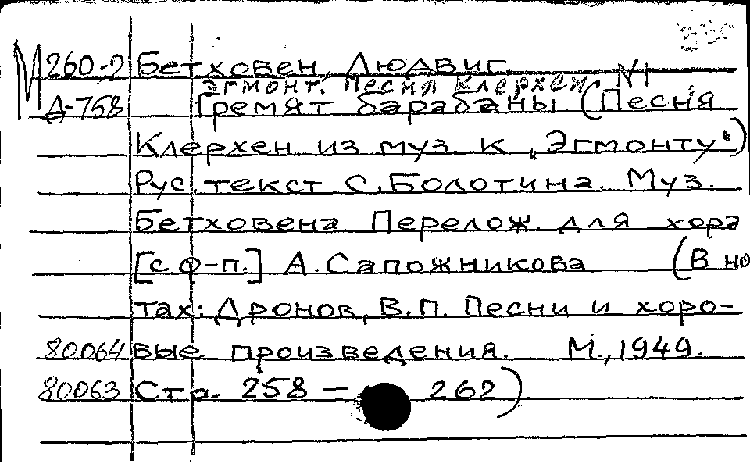 М 260-2 Бетховен, Людвиг
Эгмонт. Песня Клерхен, №1
Д-758 Гремят барабаны (Песня
Клерхен из муз. к „Эгмонту")
Рус. текст С. Болотина. Муз.
Бетховена Перелож. для хора
[с ф-п.] А. Сапожникова (В но
тах: Дронов, В.П. Песни и хоро-
80064 вые произведения. М., 1949.
80063 Стр. 258 – 262)